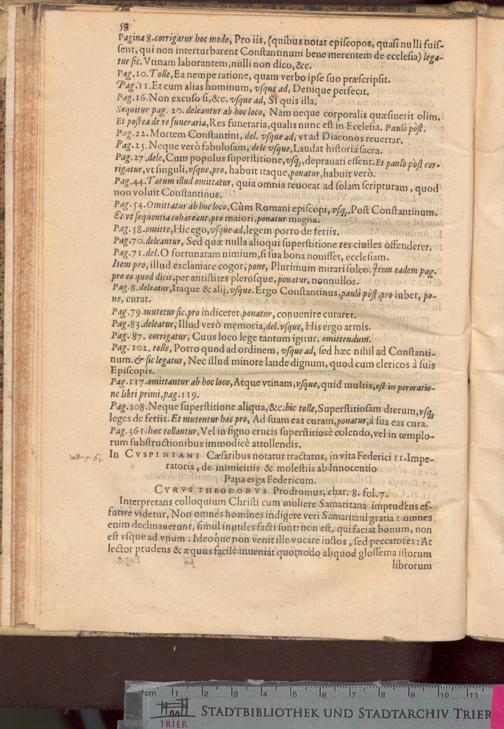 58
Pagina 8. corrigatur hoc modo, Pro iis, (quibus notat episcopos, quasi nulli fuis-
sent, qui non interturbarent Constantinum bene merentem de ecclesia) lega-
tur sic. Vtinam laborantem, nulli non dico, &c.
Pag. 10. Tolle, Ea nempe ratione, quam verbo ipse suo præscripsit.
Pag. 11. Et cum alias hominum, vsque ad, Denique persecit.
Pag. 16. Non excuso si, &c. vsque ad, Si quis illa.
Sequitur pag. 20. deleantur ab hoc loco, Nam neque corporalis quæsiuerit olim.
Et postea de re funeraria, Res funeraria, qualis nunc est in Ecclesia. Paulò pòst.
Pag. 22. Mortem Constantini, del. vsque ad, vt ad Diaconos reuertar.
Pag. 25. Neque verò fabulosam, dele vsque, Laudat historia sacra.
Pag. 27. dele, Cum populus superstitione, vsq, deprauati essent. Et paulò pòst cor-
rigatur, vt singuli, vsque, pro, habuit itaque, ponatur, habuit verò.
Pag. 44. Totum illud omittatur, quia omnia reuocat ad solam scripturam, quod
non voluit Constantinus.
Pag. 54. Omittatur ab hoc loco, Cùm Romani episcopi, vsq, Post Constantinum.
Et vt sequentia cohæreant, pro maiori, ponatur magna.
Pag. 58. omitte, Hic ego, vsque ad, legem porro de feriis.
Pag. 70. deleantur, Sed quæ nulla alioqui superstitione res ciuiles offenderet.
Pag. 71. del. O fortunatam nimium, si sua bona nouisset, ecclesiam.
Item pro, illud exclamare cogor, pone, Plurimum mirari soleo. Item eadem pag.
pro eo quod dicit, per antistites plerosque, ponatur, nonnullos.
Pag. 8. deleatur, Itaque & alij, vsque. Ergo Constantinus, paulò pòst, pro iubet, po-
ne, curat.
Pag. 79. mutetur sic, pro indiceret, ponatur, conuenire curaret.
Pag. 83. deleatur, Illud verò memoria, del. vsque, His ergo armis.
Pag. 87. corrigatur, Cuus loco lege tantum igitur, omittendum.
Pag. 102. tolle, Porro quod ad ordinem, vsque ad, sed hæc nihil ad Constanti-
num. & sic legatur, Nec illud minore laude dignum, quod cum clericos à suis
Episcopis.
Pag. 117. omittantur ab hoc loco, Atque vtinam, vsque, quid multis, est in peroratio-
ne libri primi, pag. 119.
Pag. 208. Neque superstitione aliqua, &c. hic tolle, Superstitiosam dierum, vsq,
leges de feriis. Et mutentur hac pro, Ad suam eas curam, ponatur, à sua eas cura.
Pag. 361. hac tollantur, Vel in signo crucis superstitiosè colendo, vel in templo-
rum substructionibus immodicè attollendis.
In CVSPINIANI Cæsaribus notatur tractatus, in vita Federici II. Impe-
ratoris, de inimicitiis & molestiis ab Innocentio
Papa erga Federicum.
CYRVS THEODORVS. Prodromus, char. 8. fol. 7.
Interpretans colloquium Christi cum muliere Samaritana imprudens ef-
futire videtur, Non omnes homines indigere veri Samaritani gratia: omnes
enim declinauerunt, simul inutiles facti sunt: non est, qui faciat bonum, non
est vsque ad vnum: Ideoque non venit ille vocare iustos, sed peccatores: At
lector prudens & æquus facilè inueniat quomodo aliquod glossema istorum
librorum
cm 1 2 3 4 5 6 7 8 9 10 11
STADTBIBLIOTHEK UND STADTARCHIV TRIER
TRIER